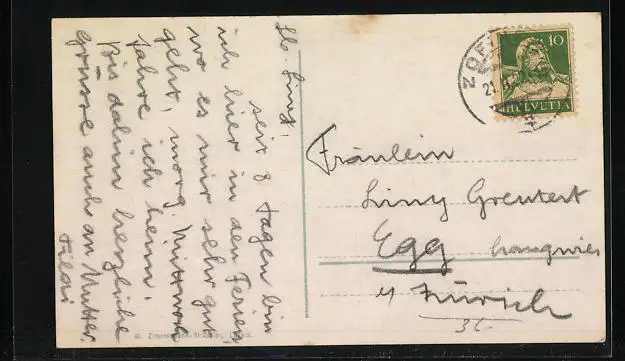 Lb. Liny,
seit 8 Tagen bin
ich hier in den Ferien
wo es mir sehr gut
geht, morg. Mittwoch
fahre ich heim.
Bis dahin herzliche
Grüsse auch an Mutter.
Fräulein
Liny Greutert
Egg
b/ Zürich
36.
ZOF
21.
10
HELVETIA
W. Zimmermann-Strässler,